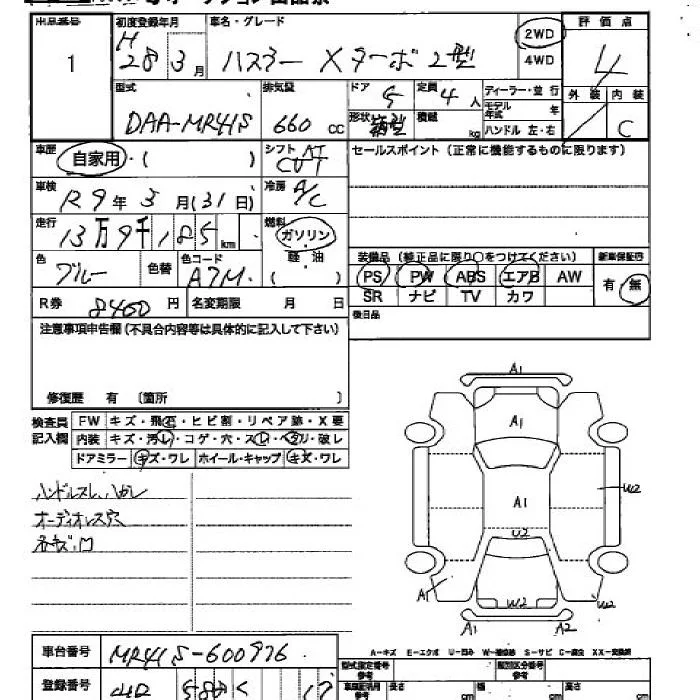 出品番号 初度登録年月 車名・グレード 2WD 評価点
1 H 28年 3月 ハスラー Xターボ 2型 4WD 4
型式 排気量 ドア 定員 ディーラー・並行 外装 内装
DAA-MR41S 660 cc 5 4人 モデル年式 年 C
形状 箱型 積載 kg ハンドル 左・右
車歴 自家用・( ) シフト AT CVT セールスポイント(正常に機能するものに限ります)
車検 R9年3月(31日) 冷房 A/C
走行 13万9千185km 燃料 ガソリン
色 ブルー 色替 色コード A7M 軽油 ( )
装備品(純正品に限り○をつけてください) 新車保証書
PS PW ABS エアB AW 有・無
SR ナビ TV カワ
R券 8460円 名変期限 月 日 後日品
注意事項申告欄(不具合内容等は具体的に記入して下さい)
修復歴 有 〔箇所 〕
検査員記入欄 FW キズ・飛石・ヒビ割・リペア跡・X要
内装 キズ・汚レ・コゲ・穴・スレ・ヘコリ・破レ
ドアミラー キズ・ワレ ホイール・キャップ キズ・ワレ
ハンドルスレ、ハガレ
オーディオレス穴
A1
A1
A1
U2
W2
W2
A1
W2
A1 A2
A-キズ E-エクボ U-凹み W-補修跡 S-サビ C-腐食 XX-交換済
車台番号 MR41S-600976
登録番号
型式指定番号 参考 類別区分番号 参考
長さ cm 幅 cm 高さ cm